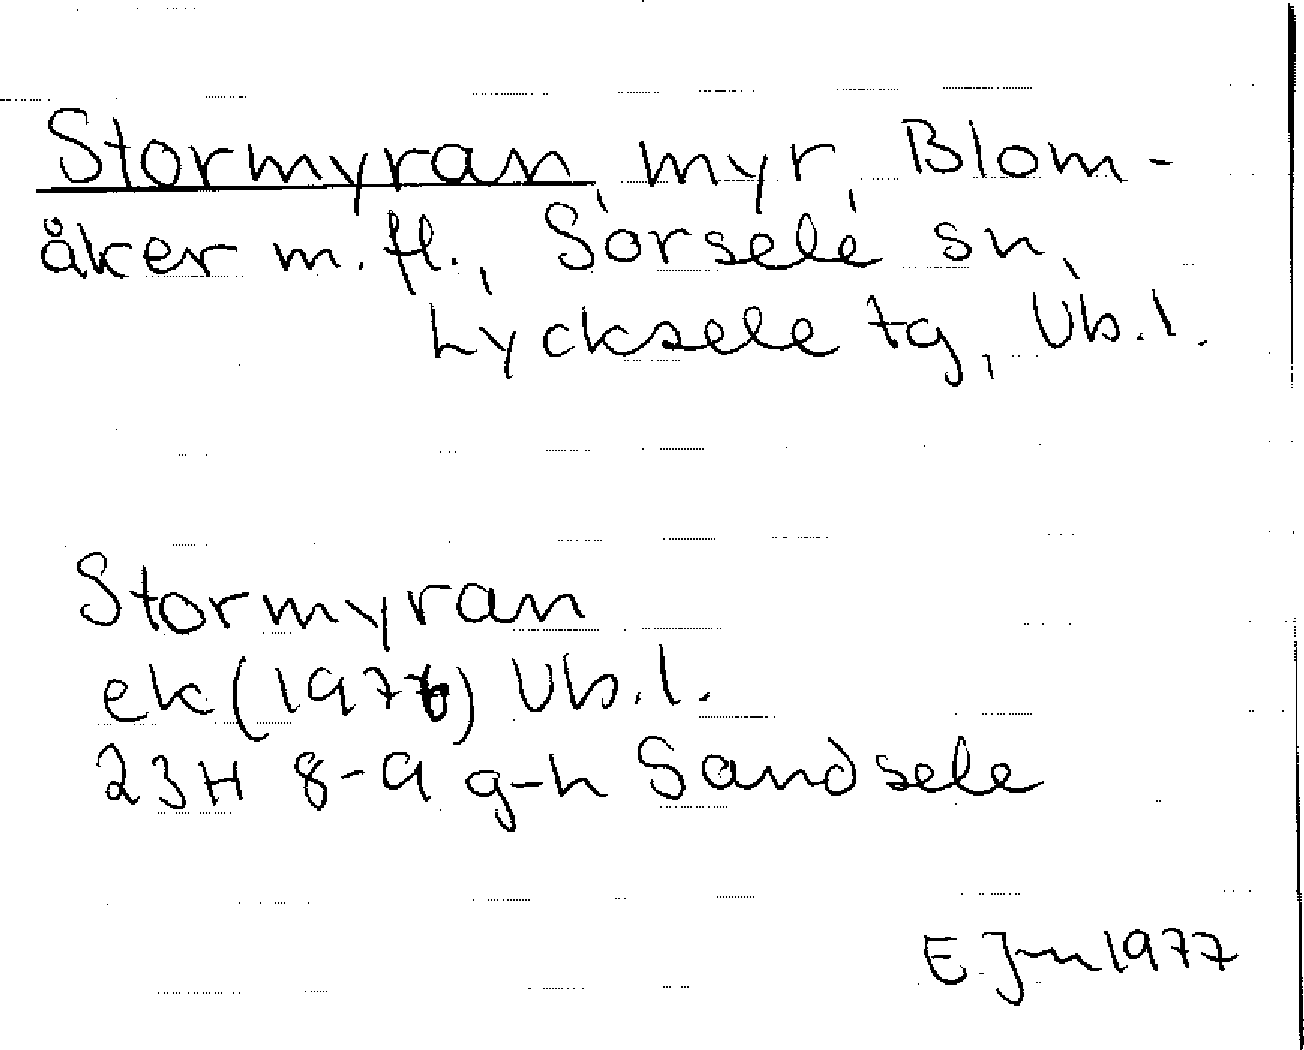 Stormyran, myr, Blom-
åker m.fl., Sorsele sn,
Lycksele tg, Vb.l.
Stormyran
ek (1976) Vb.l.
23H 8-9 g-h Sandsele
E 1977